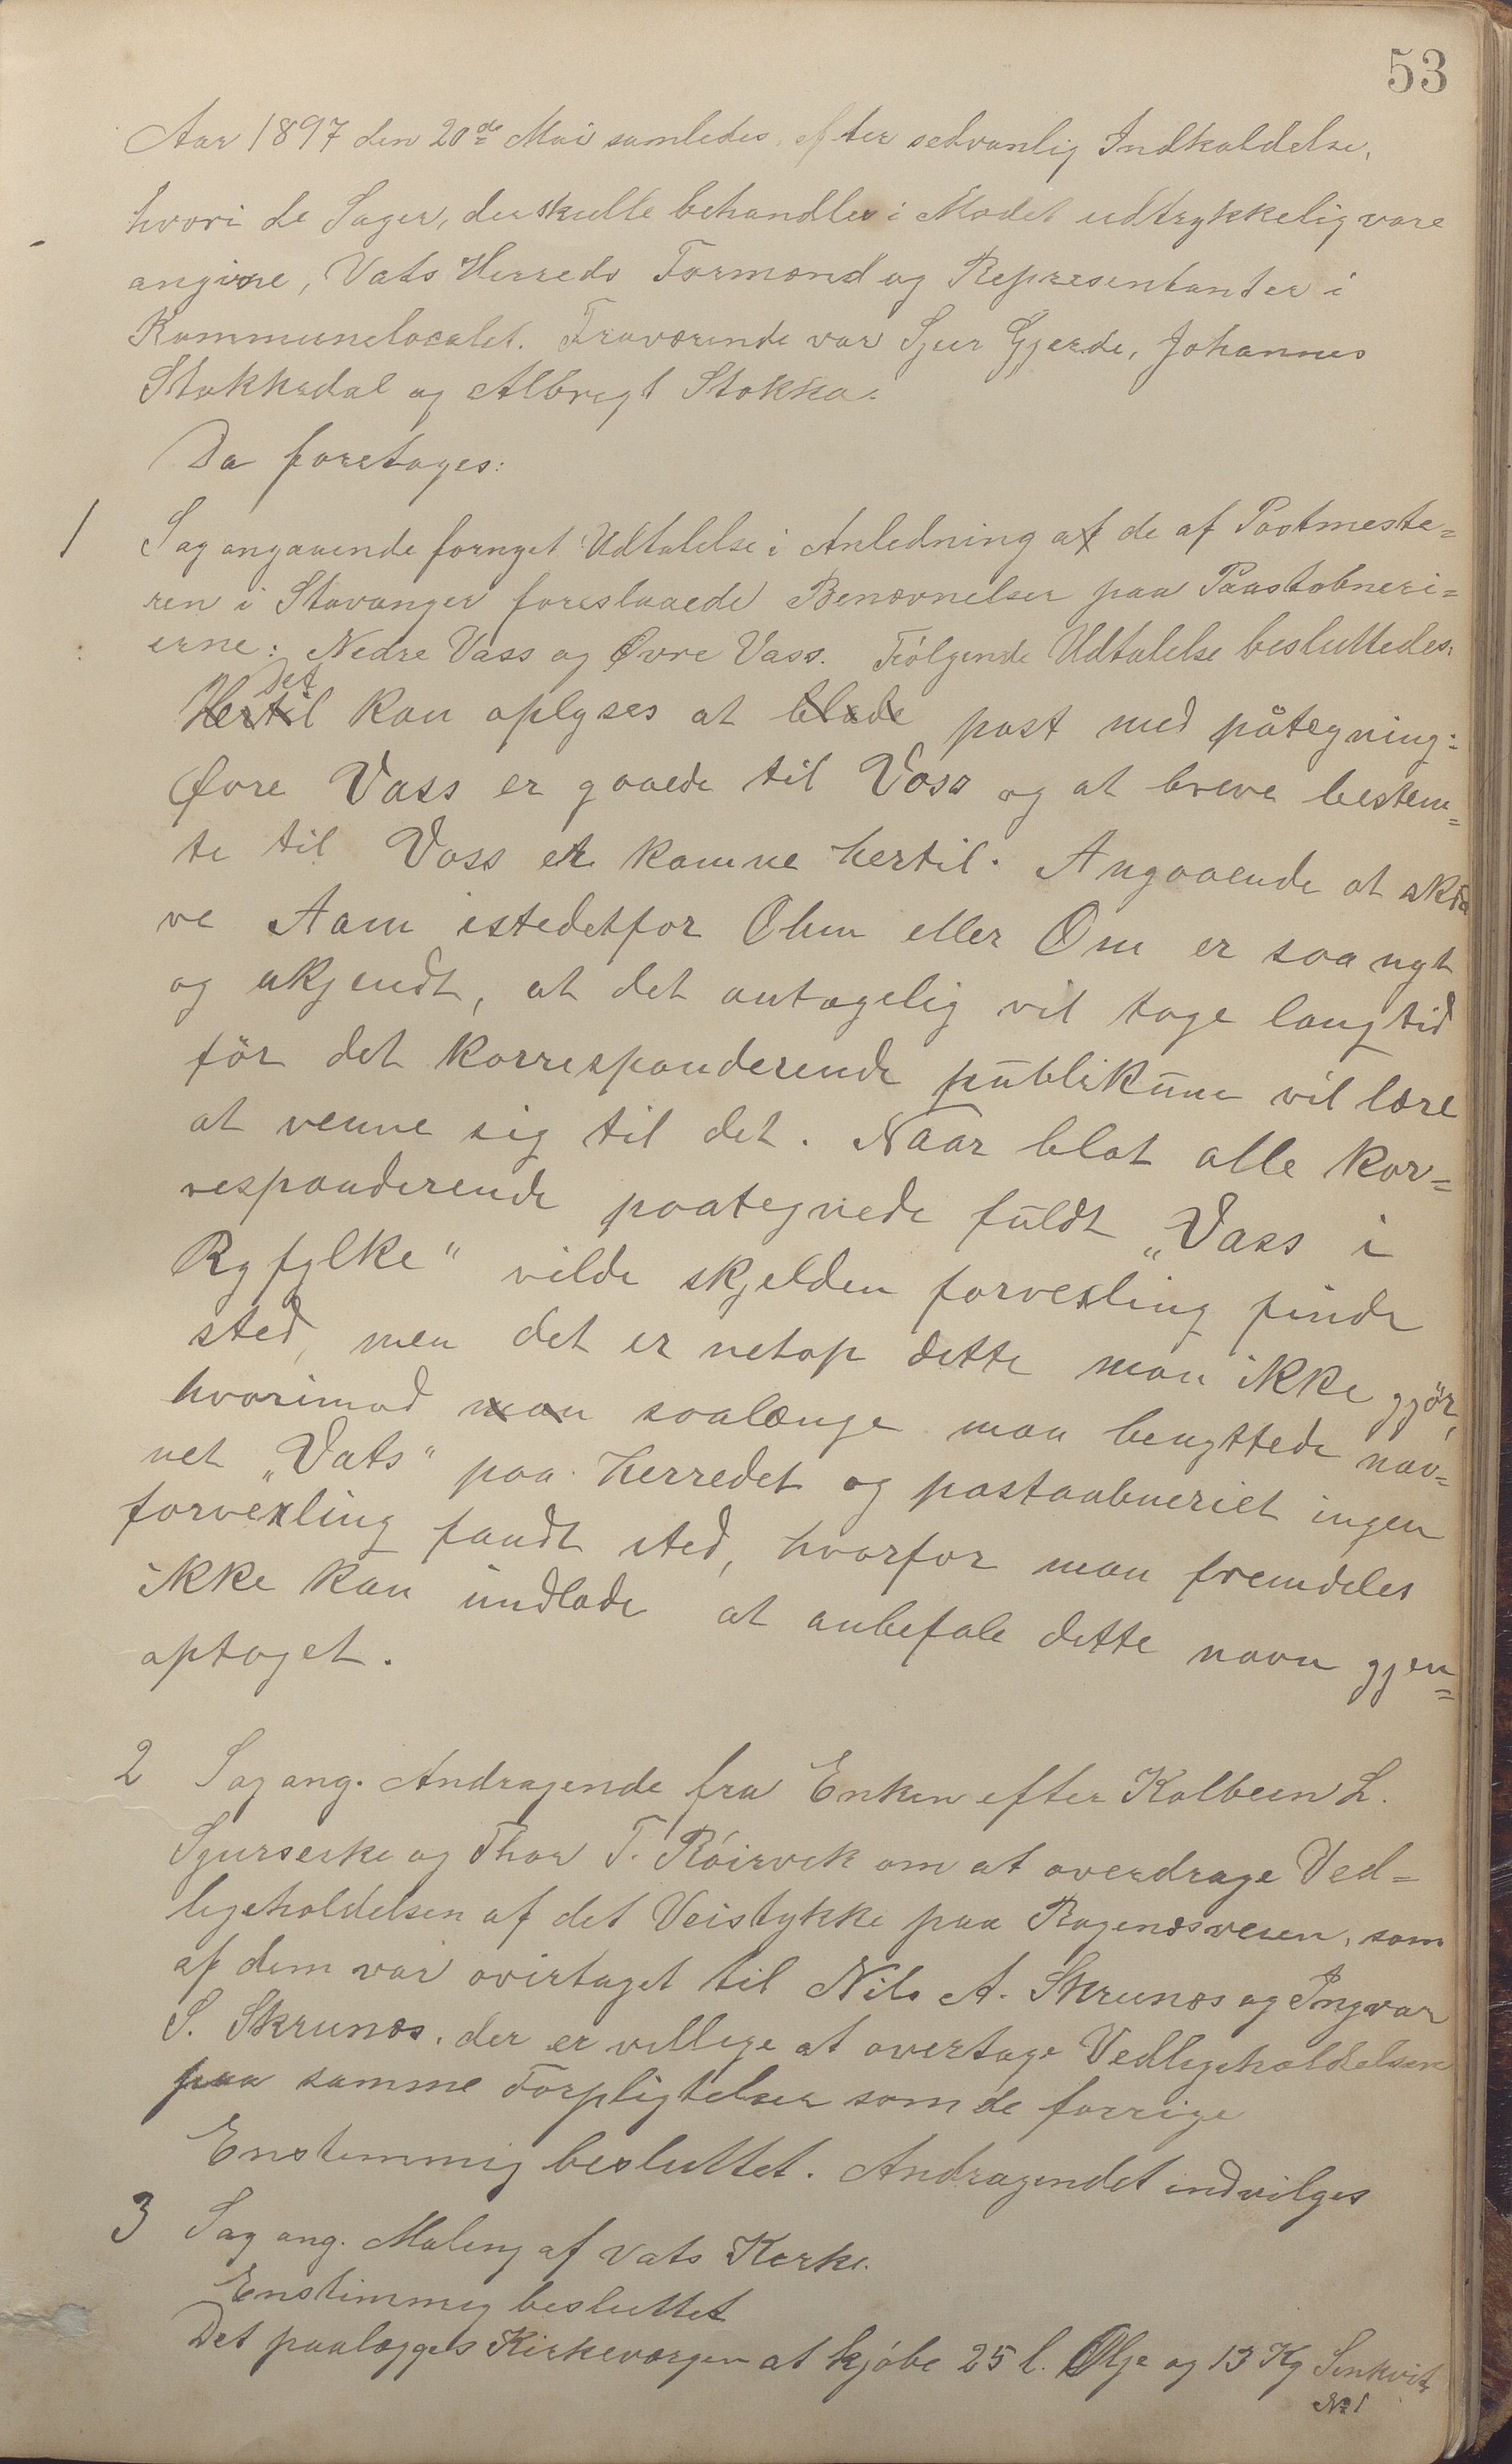 53
Aar 1897 den 20de Mai samledes efter sedvanlig Indkaldelse,
hvori de Sager, der skulle behandles i Mødet udtrykkelig vare
angivne, Vats Herreds Formænd og Repræsentanter i
Kommunelocalet. Fraværende var Sjur Gjerde, Johannes
Stakkedal og Albregt Stokka.
Da foretages:
1 Sag angaaende fornyet Udtalelse i Anledning af de af Postmeste=
ren i Stavanger foreslaaede Benævnelser paa Paastobneri=
erne: Nedre Vass og Øvre Vass. Følgende Udtalelse besluttedes:
Det
Hertil kan oplyses at blade post med påtegning:
Øvre Vass er gaaede til Voss og at breve bestem=
te til Voss er komne hertil. Angaaende at skri
ve Aam istedetfor Ohm eller Om er saa nyt
og ukjendt, at det antagelig vil tage lang tid
för det korresponderende publikum vil lære
at venne sig til det. Naar blot alle kor=
responderende paategnede fuldt „Vass i
Ryfylke" vilde skjelden forvexling finde
sted, men det er netop dette man ikke gjör,
hvorimod man saalænge man benyttede nav=
net „Vats" paa Herredet og postaabneriet ingen
forvexling fandt sted, hvorfor man fremdeles
ikke kan undlade at anbefale dette navn gjen=
optaget.
2 Sag ang. Andragende fra Enken efter Kolbeen L.
Sjurseike og Thor T. Röirvik om at overdrage Ved=
ligeholdelsen af det Veistykke paa Ragenæsveien, som
af dem var overtaget til Nils A. Skrunæs og Ingvar
S. Skrunæs, der er villige at overtage Vedligeholdelsen
paa samme Forpligtelser som de forrige
Enstemmig besluttet. Andragendet indvilges
3 Sag ang. Maling af Vats Kerke.
Enstimmig besluttet
Det paalægges Kirkeværgen at kjöbe 25 l. Olje og 13 Kg Sinkvit
No 1